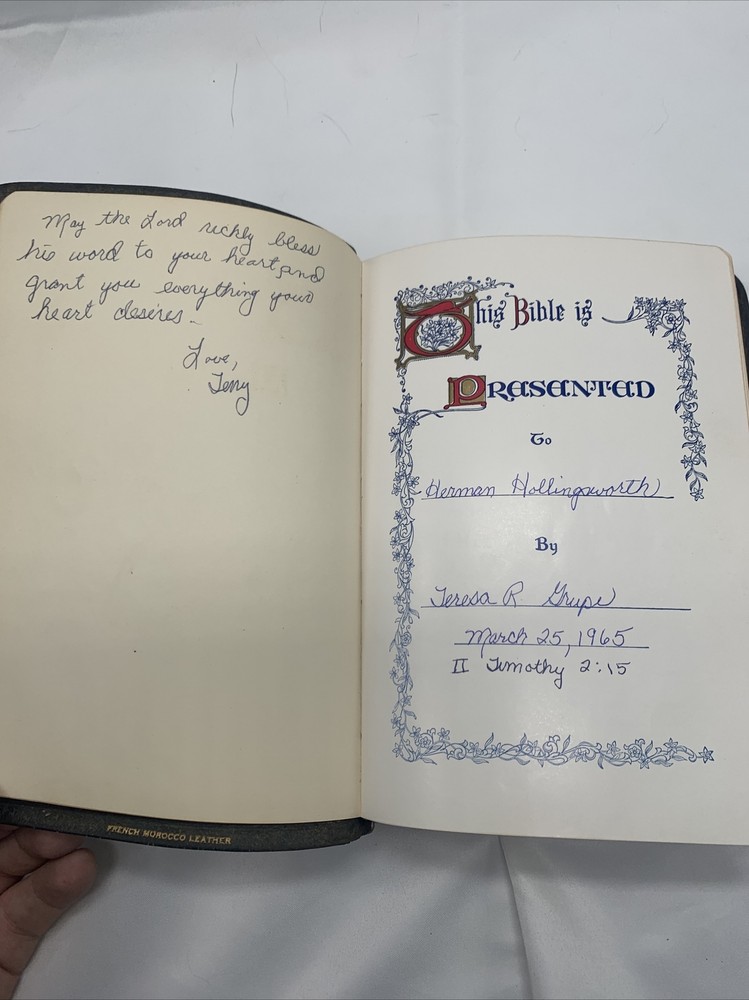 May the Lord richly bless
his word to your heart and
grant you everything your
heart desires -
Love,
Terry
FRENCH MOROCCO LEATHER
This Bible is
PRESENTED
To
Herman Hollingsworth
By
Teresa R Grupe
March 25, 1965
II Timothy 2:15